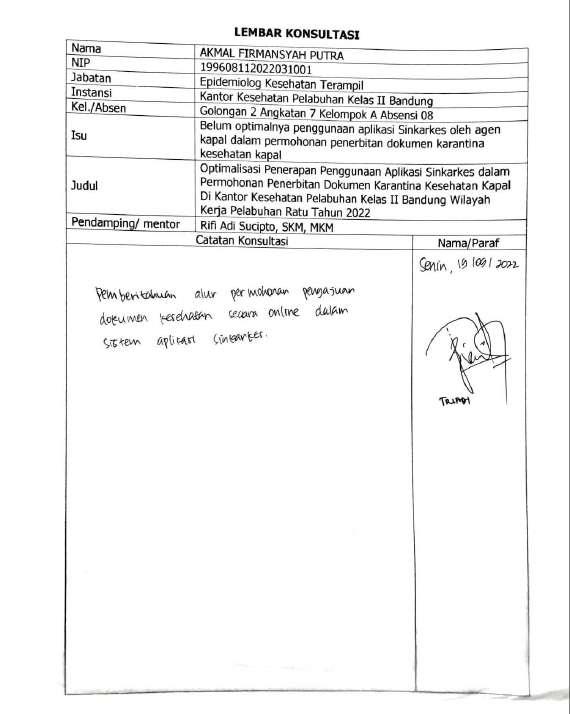 LEMBAR KONSULTASI
Nama AKMAL FIRMANSYAH PUTRA
NIP 199608112022031001
Jabatan Epidemiolog Kesehatan Terampil
Instansi Kantor Kesehatan Pelabuhan Kelas II Bandung
Kel./Absen Golongan 2 Angkatan 7 Kelompok A Absensi 08
Isu Belum optimalnya penggunaan aplikasi Sinkarkes oleh agen
kapal dalam permohonan penerbitan dokumen karantina
kesehatan kapal
Judul Optimalisasi Penerapan Penggunaan Aplikasi Sinkarkes dalam
Permohonan Penerbitan Dokumen Karantina Kesehatan Kapal
Di Kantor Kesehatan Pelabuhan Kelas II Bandung Wilayah
Kerja Pelabuhan Ratu Tahun 2022
Pendamping/ mentor Rifi Adi Sucipto, SKM, MKM
Catatan Konsultasi Nama/Paraf
Senin, 19/09/2022
Pemberitahuan alur permohonan pengajuan
dokumen kesehatan secara online dalam
sistem aplikasi Sinkarkes.